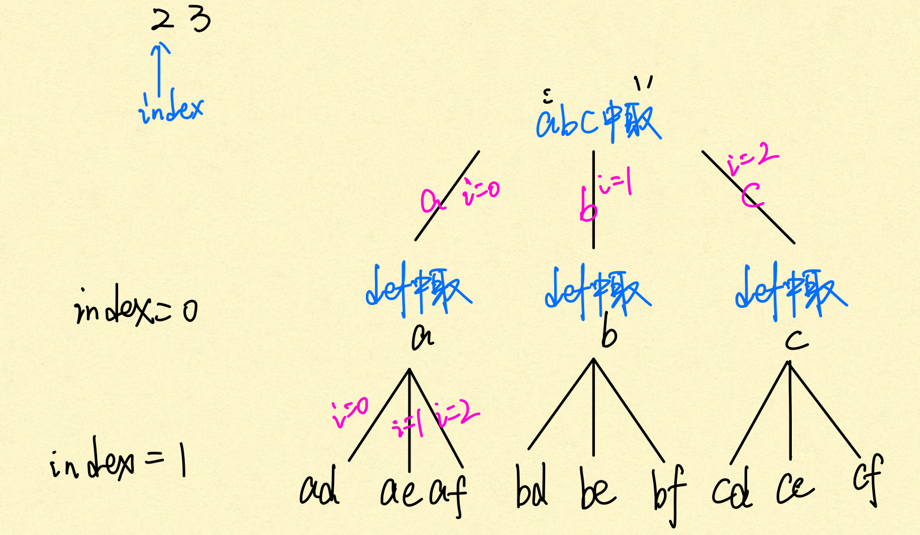 2 3
index
abc中取
a i=0 b i=1 i=2 c
index=0
def中取 def中取 def中取
a b c
i=0 i=1 i=2
index=1
ad ae af bd be bf cd ce cf